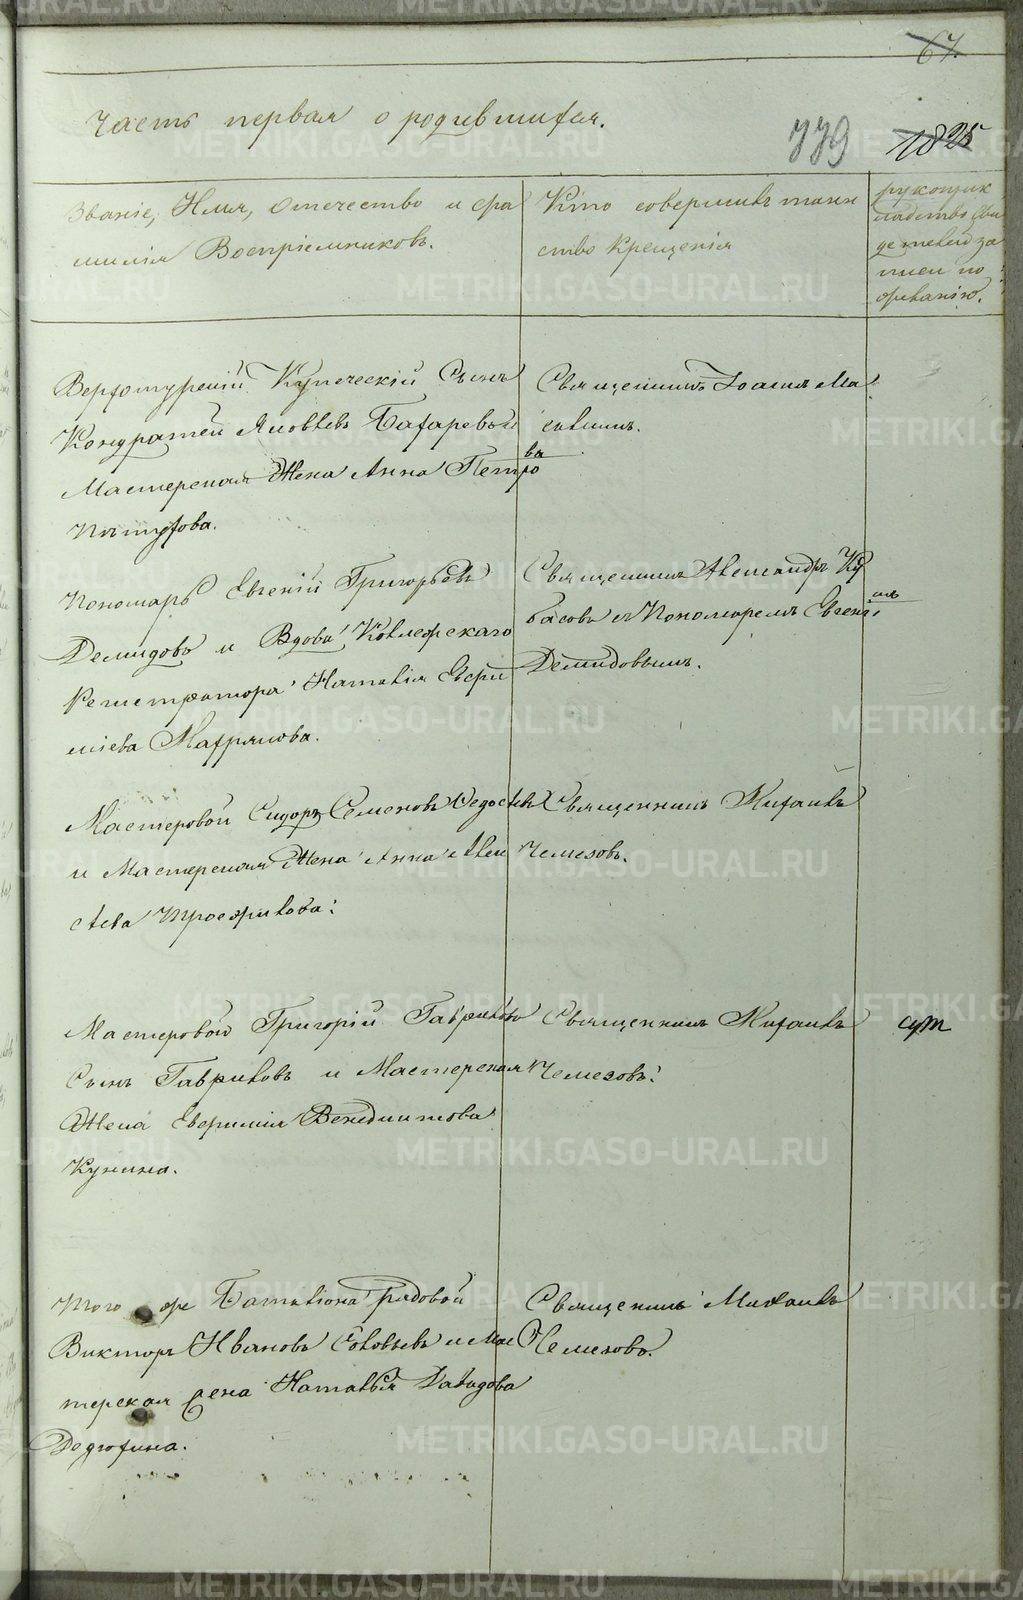 67.
Часть первая о родившихся.
779 1825
Званіе, Имя, Отечество и фа
милія Воспріемниковъ.
Кто совершилъ таин
ство Крещенія
рукоприк
ладство сви
детелей за
писи по
желанію.
Верхотурскій Купеческій Сынъ
Кондратей Яковлевъ
Мастерская Жена Анна Петро
ва
Пѣтухова.
Священникъ Іоаннъ
Пономарь Евгеній Григорьевъ
Демидовъ и Вдова Коллежскаго
Регистратора Наталія Евфи
міева
Священникъ Александръ
с Пономаремъ Евгені
емъ
Демидовымъ.
Мастеровой Сидоръ Семеновъ Федосѣевъ
и Мастерская Жена Анна Алек
сѣева Трофимова.
Священникъ Михаилъ
Чемезовъ.
Мастеровой Григорій Гавриловъ
Сынъ Гавриловъ и Мастерская
Жена Евфимія Венедиктова
Кунина.
Священникъ Михаилъ
Чемезовъ.
Того же Баталіона рядовой
Викторъ Ивановъ Соловьевъ и мас
терская жена Наталья Давидова
Дедюхина.
Священникъ Михаилъ
Чемезовъ.
METRIKI.GASO-URAL.RU